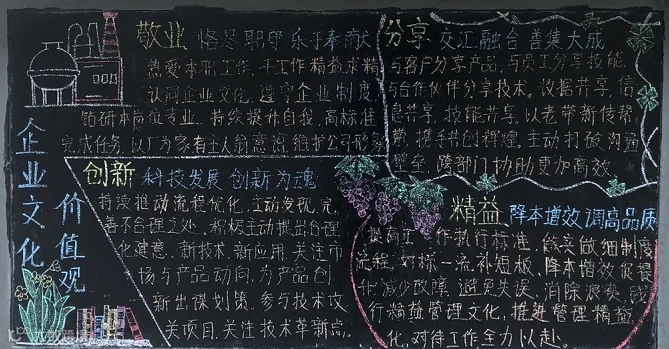 企业文化
价值观
敬业 恪尽职守 乐于奉献
热爱本职工作,干工作精益求精
认同企业文化,遵守企业制度,
钻研本岗位专业,持续提升自我,高标准
完成任务,以厂为家有主人翁意识,维护公司形象
分享 交汇融合 善集大成
与客户分享产品,与员工分享技能
与合作伙伴分享技术。数据共享,信
息共享,技能共享,以老带新传帮
带,携手共创辉煌,主动打破沟通
壁垒,跨部门协助更加高效。
创新 科技发展 创新为魂
持续推动流程优化,主动发现,完
善不合理之处,积极主动提出合理
化建意,新技术,新应用,关注市
场与产品动向,为产品创
新出谋划策,参与技术攻
关项目,关注技术革新点。
精益 降本增效 调高品质
提高工作执行标准,做实做细制度
流程,对标一流补短板,降本增效促提
升减少故障,避免失误,消除浪费,践
行精益管理文化,推进管理精益
化,对待工作全力以赴。